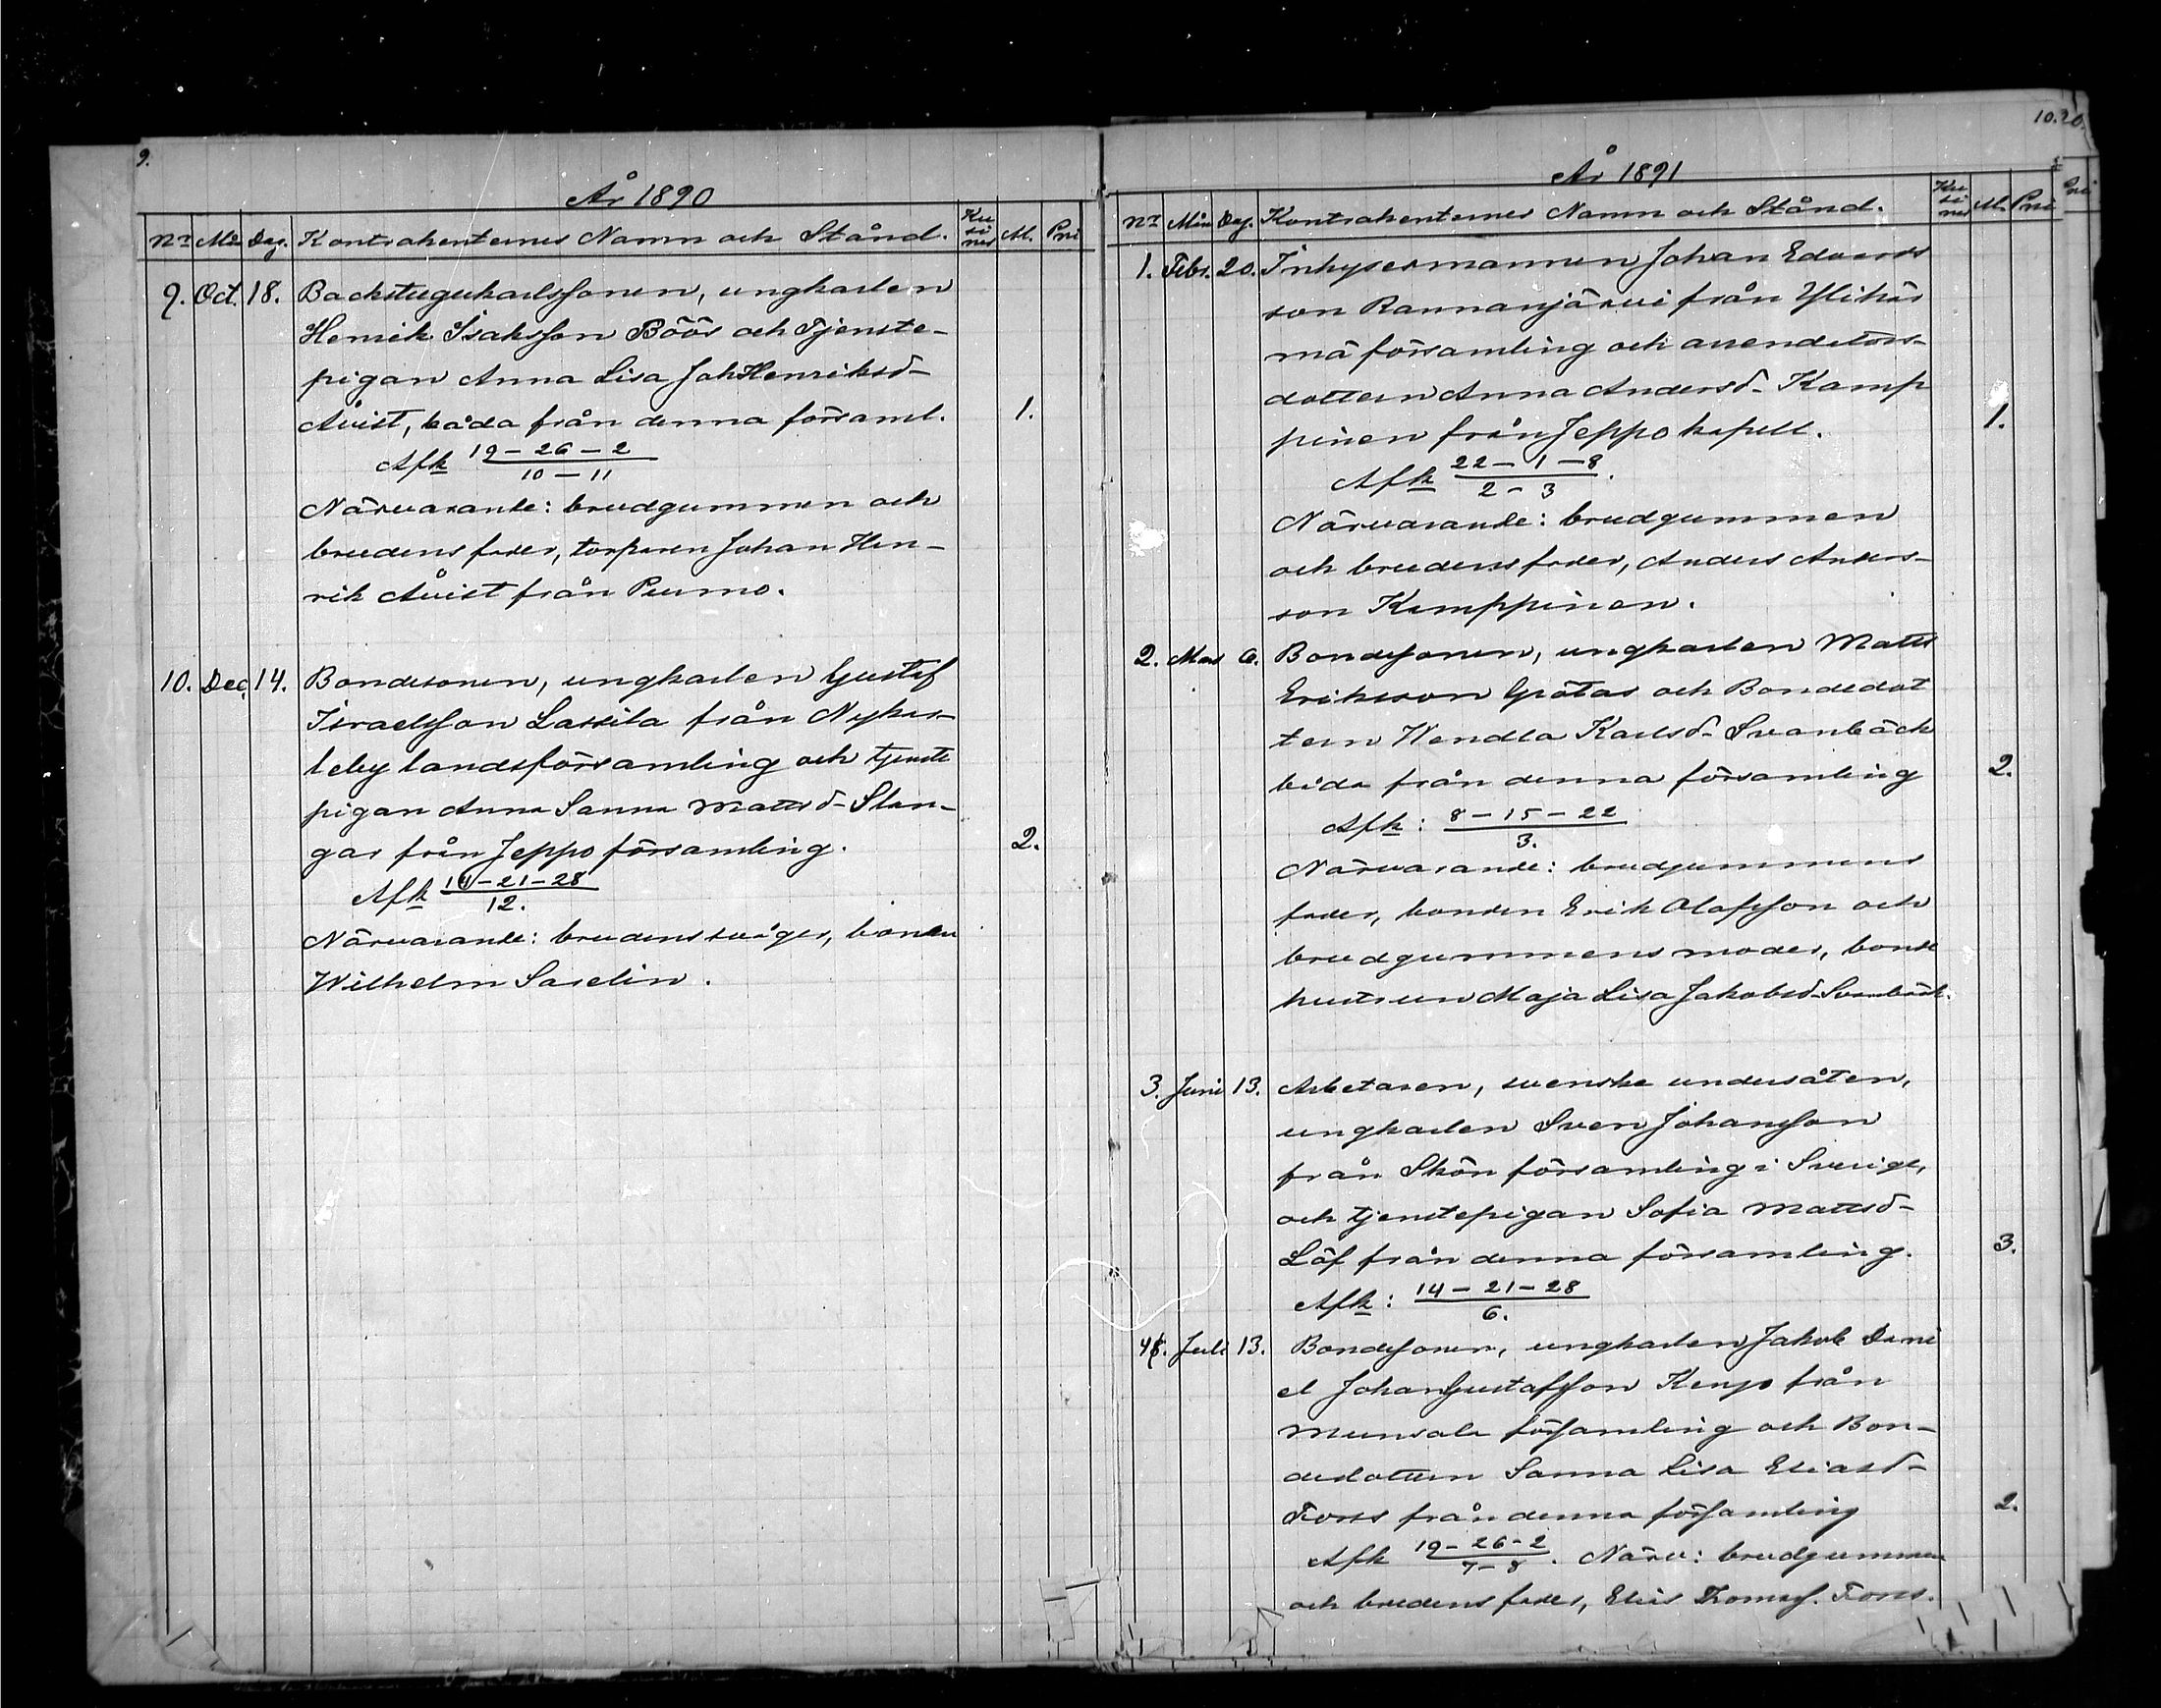 9.
År 1890
Nr Mån Dag. Kontrahenternes Namn och Stånd. Kusiner M. Pni
9. Oct. 18. Backstugukarlssonen, ungkarlen
Henrik Isaksson Böös och Tjenste-
pigan Anna Lisa Joh Henriksd-
Åvist, båda från denna församl. 1.
Afk 19-26-2
10-11
Närvarande: brudgummen och
brudens fader, torparen Johan Hen-
rik Åvist från Purmo.
10. Dec. 14. Bondesonen, ungkarlen Gustaf
Israelsson Lassila från Nykar-
leby landsförsamling och tjenste
pigan Anna Sanna Mattsd- Slan-
gar från Jeppo församling. 2.
Afk 14-21-28
12.
Närvarande: brudens svåger, bonden
Wilhelm Sarelin.
10. 20.
År 1891
Nr Mån Dag. Kontrahenternes Namn och Stånd. Kusiner M. Pni
1. Febr. 20. Inhysesmannen Johan Edvards
son Rannanjärvi från Ylihär
mä församling och arrendators-
dottern Anna Andersd- Kamp
pinen från Jeppo kapell. 1.
Afk 22-1-8.
2-3
Närvarande: brudgummen
och brudens fader, Anders Anders-
son Kamppinen.
2. Mars 6. Bondesonen, ungkarlen Matts
Eriksson Grötas och Bondedot
tern Wendla Karlsd- Svanbäck
båda från denna församling 2.
Afk: 8-15-22
3.
Närvarande: brudgummens
fader, bonden Erik Olofsson och
brudgummens moder, bonde
hustrun Maja Lisa Jakobsd- Svanbäck.
3. Juni 13. Arbetaren, svenske undersåten,
ungkarlen Sven Johansson
från Skön församling i Sverige,
och tjenstepigan Sofia Mattsd-
Löf från denna församling. 3.
Afk: 14-21-28
6.
4. Juli 13. Bondesonen, ungkarlen Jakob Dani
el Johan Gustafsson Kengo från
Munsala församling och Bon-
dedottern Sanna Lisa Eliasd-
Forss från denna församling 2.
Afk 19-26-2. Närv: brudgummen
7-8
och brudens fader, Elias Thomass. Forss.